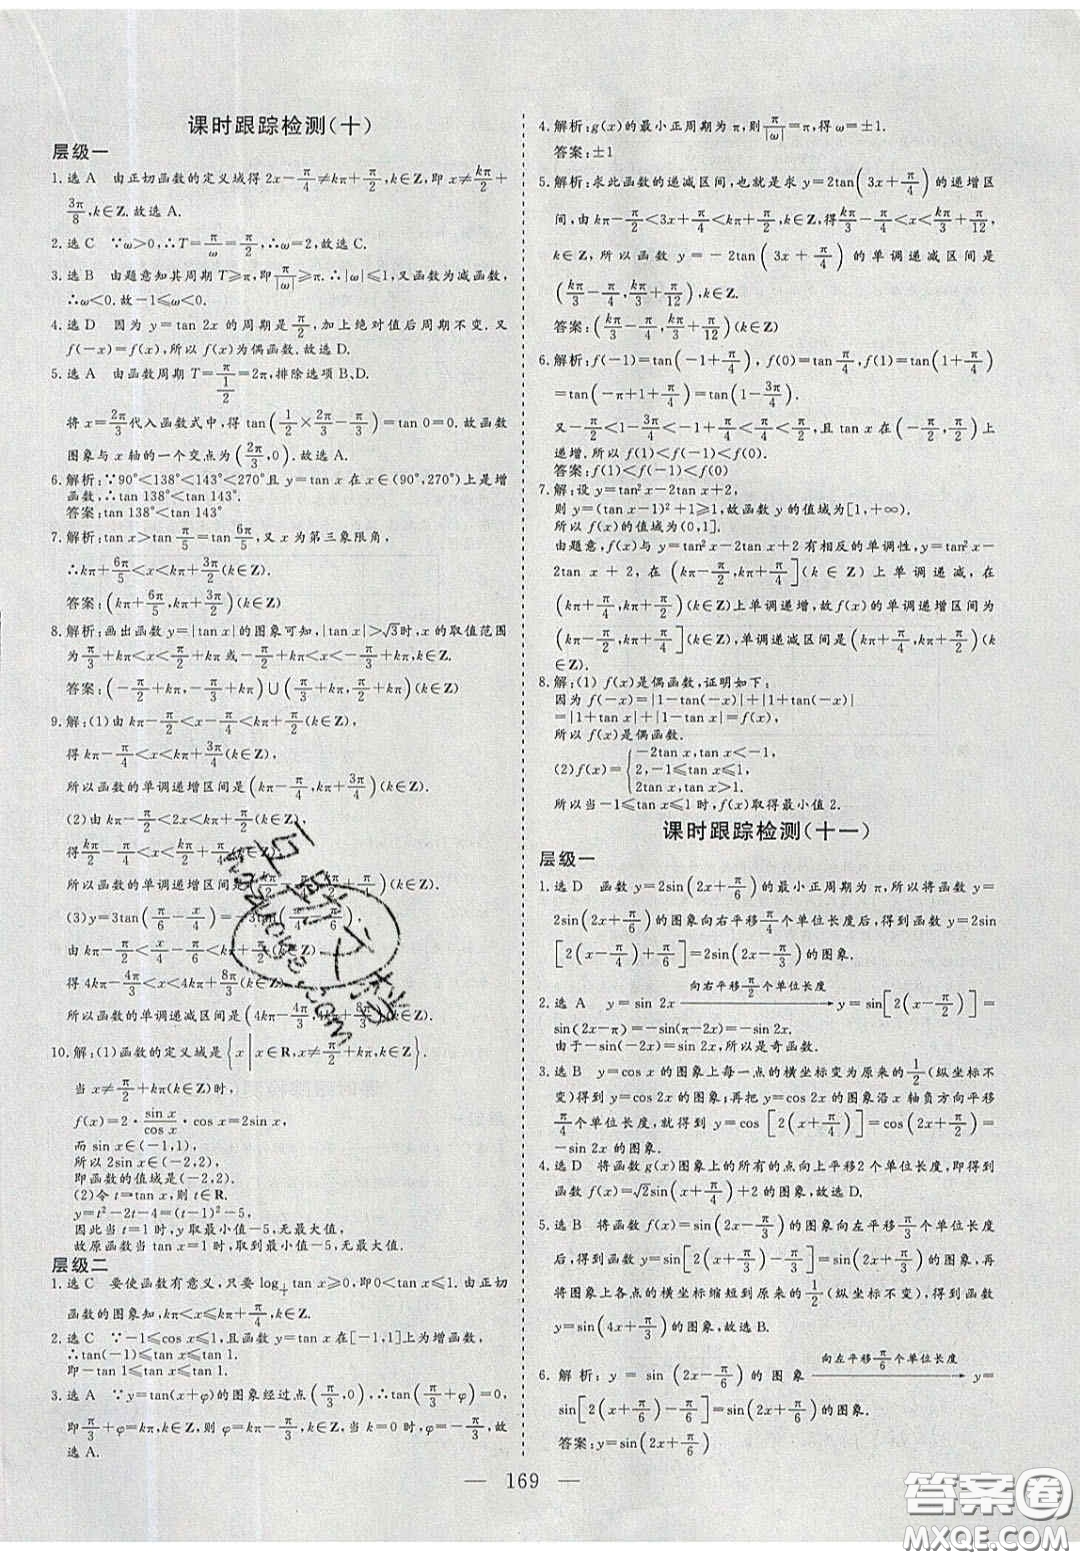 课时跟踪检测(十)
层级一
1. 选 A　由正切函数的定义域得 2x-π/4≠kπ+π/2,k∈Z,即 x≠kπ/2+
3π/8,k∈Z. 故选 A.
2. 选 C　∵ω>0,∴T=π/ω=π/2,∴ω=2,故选 C.
3. 选 B　由题意知其周期 T⩾π,即π/|ω|⩾π. ∴|ω|⩽1,又函数为减函数,
∴ω<0. 故-1⩽ω<0.
4. 选 D　因为 y=tan 2x 的周期是π/2,加上绝对值后周期不变. 又
f(-x)=f(x),所以 f(x)为偶函数. 故选 D.
5. 选 A　由函数周期 T=π/(1/2)=2π,排除选项 B、D.
将 x=2π/3代入函数式中,得 tan(1/2×2π/3-π/3)=tan 0=0. 故函数
图象与 x 轴的一个交点为(2π/3,0). 故选 A.
6. 解析:∵90°<138°<143°<270°且 y=tan x 在 x∈(90°,270°)上是增
函数,∴tan 138°<tan 143°.
答案:tan 138°<tan 143°
7. 解析:tan x>tan π/5=tan 6π/5,又 x 为第三象限角,
∴kπ+6π/5<x<kπ+3π/2(k∈Z).
答案:(kπ+6π/5,kπ+3π/2)(k∈Z)
8. 解析:画出函数 y=|tan x|的图象可知,|tan x|>√3时,x 的取值范围
为π/3+kπ<x<π/2+kπ或-π/2+kπ<x<-π/3+kπ,k∈Z.
答案:(-π/2+kπ,-π/3+kπ)∪(π/3+kπ,π/2+kπ)(k∈Z)
9. 解:(1)由 kπ-π/2<x-π/4<kπ+π/2(k∈Z),
得 kπ-π/4<x<kπ+3π/4(k∈Z).
所以函数的单调递增区间是(kπ-π/4,kπ+3π/4)(k∈Z)
(2)由 kπ-π/2<2x<kπ+π/2(k∈Z),
得kπ/2-π/4<x<kπ/2+π/4(k∈Z).
所以函数的单调递增区间是(kπ/2-π/4,kπ/2+π/4)(k∈Z).
(3)y=3tan(π/6-x/4)=-3tan(x/4-π/6),
由 kπ-π/2<x/4-π/6<kπ+π/2(k∈Z),
得 4kπ-4π/3<x<4kπ+8π/3(k∈Z).
所以函数的单调递减区间是(4kπ-4π/3,4kπ+8π/3)(k∈Z).
10. 解:(1)函数的定义域是{x|x∈R,x≠π/2+kπ,k∈Z}.
当 x≠π/2+kπ(k∈Z)时,
f(x)=2·sin x/cos x·cos x=2sin x,
而 sin x∈(-1,1),
所以 2sin x∈(-2,2),
即函数的值域是(-2,2).
(2)令 t=tan x,则 t∈R,
y=t²-2t-4=(t-1)²-5,
因此当 t=1 时,y 取最小值-5,无最大值,
故原函数当 tan x=1 时,取到最小值-5,无最大值.
层级二
1. 选 C　要使函数有意义,只要 log tan x⩾0,即0<tan x⩽1. 由正切
函数的图象知,kπ<x⩽kπ+π/4,k∈Z.
2. 选 C　∵-1⩽cos x⩽1,且函数 y=tan x 在[-1,1]上为增函数,
∴tan(-1)⩽tan x⩽tan 1.
即-tan 1⩽tan x⩽tan 1.
3. 选 A　∵y=tan(x+φ)的图象经过点(π/3,0),∴tan(π/3+φ)=0,
即π/3+φ=kπ,k∈Z,则 φ=kπ-π/3,k∈Z,当 k=0 时,φ=-π/3,故
选 A.
4. 解析:g(x)的最小正周期为π,则π/|ω|=π,得 ω=±1.
答案:±1
5. 解析:求此函数的递减区间,也就是求 y=2tan(3x+π/4)的递增区
间,由 kπ-π/2<3x+π/4<kπ+π/2,k∈Z,得kπ/3-π/4<x<kπ/3+π/12,
k∈Z,所以函数 y=-2tan(3x+π/4)的单调递减区间是
(kπ/3-π/4,kπ/3+π/12),k∈Z.
答案:(kπ/3-π/4,kπ/3+π/12)(k∈Z)
6. 解析:f(-1)=tan(-1+π/4),f(0)=tan π/4,f(1)=tan(1+π/4)
=tan(-π+1+π/4)=tan(1-3π/4).
又-π/2<1-3π/4<-1+π/4<π/4<π/2,且函数 tan x 在(-π/2,π/2)上
递增. 所以 f(1)<f(-1)<f(0).
答案:f(1)<f(-1)<f(0)
7. 解:设 y=tan²x-2tan x+2,
则 y=(tan x-1)²+1⩾1,故函数 y 的值域为[1,+∞).
所以 f(x)的值域为(0,1].
由题意,f(x)与 y=tan²x-2tan x+2 有相反的单调性,y=tan²x-
2tan x+2,在(kπ-π/2,kπ+π/4](k∈Z)上单调递减,在
(kπ+π/4,kπ+π/2)(k∈Z)上单调递增,故 f(x)的单调递增区间为
(kπ-π/2,kπ+π/4](k∈Z),单调递减区间是(kπ+π/4,kπ+π/2)(k
∈Z).
8. 解:(1) f(x)是偶函数,证明如下:
因为 f(-x)=|1-tan(-x)|+|1+tan(-x)|
=|1+tan x|+|1-tan x|=f(x),
所以 f(x)是偶函数.
(2)f(x)={-2tan x,tan x<-1,
2,-1⩽tan x⩽1,
2tan x,tan x>1.
所以当-1⩽tan x⩽1 时,f(x)取得最小值 2.
课时跟踪检测(十一)
层级一
1. 选 D　函数 y=2sin(2x+π/6)的最小正周期为 π,所以将函数 y=
2sin(2x+π/6)的图象向右平移π/4个单位长度后,得到函数 y=2sin
[2(x-π/4)+π/6]=2sin(2x-π/3)的图象.
2. 选 A　y=sin 2x 向右平移π/2个单位长度 y=sin[2(x-π/2)]=
sin(2x-π)=-sin(π-2x)=-sin 2x.
由于-sin(-2x)=sin 2x,所以是奇函数.
3. 选 B　y=cos x 的图象上每一点的横坐标变为原来的1/2(纵坐标不
变)得 y=cos 2x 的图象;再把 y=cos 2x 的图象沿 x 轴负方向平移
π/4个单位长度,就得到 y=cos[2(x+π/4)]=cos(2x+π/2)=
-sin 2x 的图象.
4. 选 D　将函数 g(x)图象上的所有的点向上平移2 个单位长度,即得
函数 f(x)=√2sin(x+π/4)+2 的图象,故选 D.
5. 选 B　将函数 f(x)=sin(2x-π/3)的图象向左平移π/3个单位长度
后,得到函数 y=sin[2(x+π/3)-π/3]=sin(2x+π/3)的图象,再
将图象上各点的横坐标缩短到原来的1/2(纵坐标不变),得到函数
y=sin(4x+π/3)的图象,故选 B.
6. 解析:y=sin(2x-π/6)的图象 向左平移π/6个单位长度 y=
sin[2(x+π/6)-π/6]=sin(2x+π/6)的图象.
答案:y=sin(2x+π/6)
— 169 —
答案圈
MXQE.COM